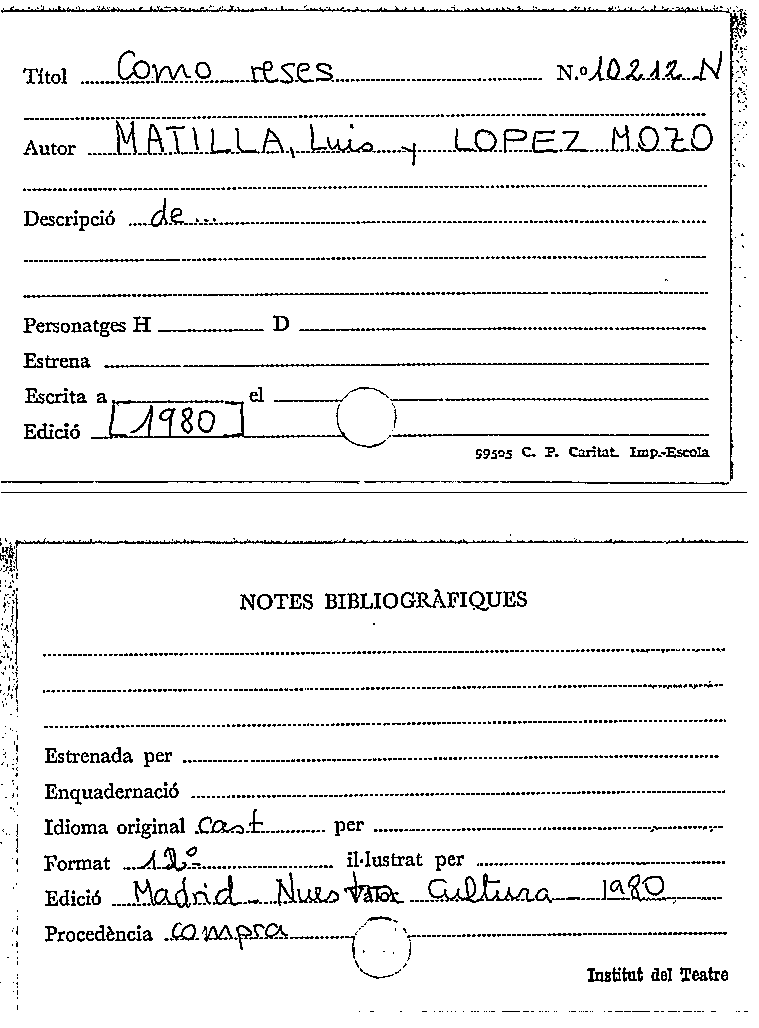 Títol Como reses N.º 10212 N
Autor MATILLA, Luis y LOPEZ MOZO
Descripció de...
Personatges H D
Estrena
Escrita a el
Edició 1980
59505 C. P. Caritat. Imp.-Escola
NOTES BIBLIOGRÀFIQUES
Estrenada per
Enquadernació
Idioma original cast per
Format 12º il·lustrat per
Edició Madrid - Nuestra Cultura - 1980
Procedència compra
Institut del Teatre